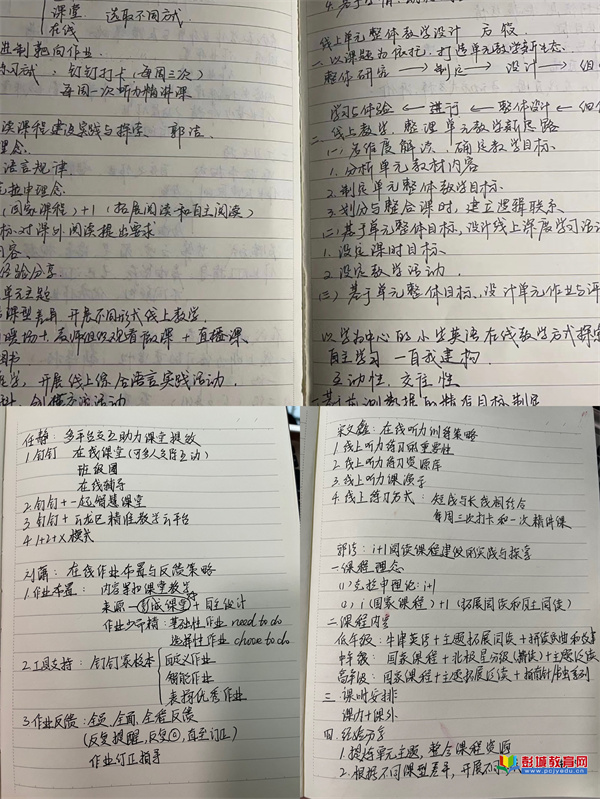 课堂 选取不同式
在线
进制靶向作业.
练习试: 钉钉打卡(每周三次)
每周一次听力精讲课
读课程建设实践与探索 郭洁
理念.
语言规律
克拉申理念
(国家课程)+1(拓展阅读和自主阅读)
标.对课外阅读提出要求
内容.
经验分享.
单元主题
课型差异 开展不同形式线上教学.
观看微课 + 直播课.
图书
开展线上综合语言实践活动.
线上单元整体教学设计 后毅.
一 以课题为依托,打造单元教学新生态.
整体研究 → 制定 → 设计 →
学习与体验 ← 进行 ← 整体设计 ←
二 线上教学,整理单元教学新思路
(一)多维度解读,确定教学目标.
1. 分析单元教材内容
2. 制定单元整体教学目标.
3. 划分与整合课时,建立逻辑联系.
(二)基于单元整体目标,设计线上深度学习活
1. 设定课时目标.
2. 设定教学活动.
(三)基于单元整体目标、设计单元作业与评
以学为中心的小学英语在线教学方式探
自主学习 — 自我建构.
互动性,交往性
任静: 多平台交互助力课堂提效
1.钉钉 在线课堂(可多人多屏互动)
班级圈
在线辅导
2.钉钉+一起智慧课堂
3.钉钉+五龙巴精准教学云平台
4. 1+2+X模式
刘蕾: 在线作业布置与反馈策略
1.作业布置: 内容紧扣课堂教学
来源—形成课堂+自主设计
作业少而精: 基础性作业 need to do
选择性作业 chose to do
2.工具支持: 钉钉家校本 自定义作业
智能作业
表扬优秀作业
3.作业反馈: 全员,全面,全程反馈
(反复提醒,反复@,直至订正)
作业订正指导
在线听力训练策略
1.线上听力练习的重要性
2.线上听力练习资源库
3.线上听力课演示
4.线上练习方式: 短线与长线相结合
每周三次打卡和一次精讲课
郭洁: i+1阅读课程建设的实践与探索
一.课程理念
(1)克拉申理论: i+1
(2) i(国家课程)+1(拓展阅读和自主阅读)
二.课程内容
低年级: 牛津英语+主题拓展阅读+
中年级: 国家课程+北极星分级(阅读)+主题泛读
高年级: 国家课程+主题拓展泛读+
三. 课时安排
课内+课外
四. 经验分享
1.提炼单元主题,整合课程资源
2.根据不同课型差异,开展不
彭城教育网
www.pcjyedu.cn